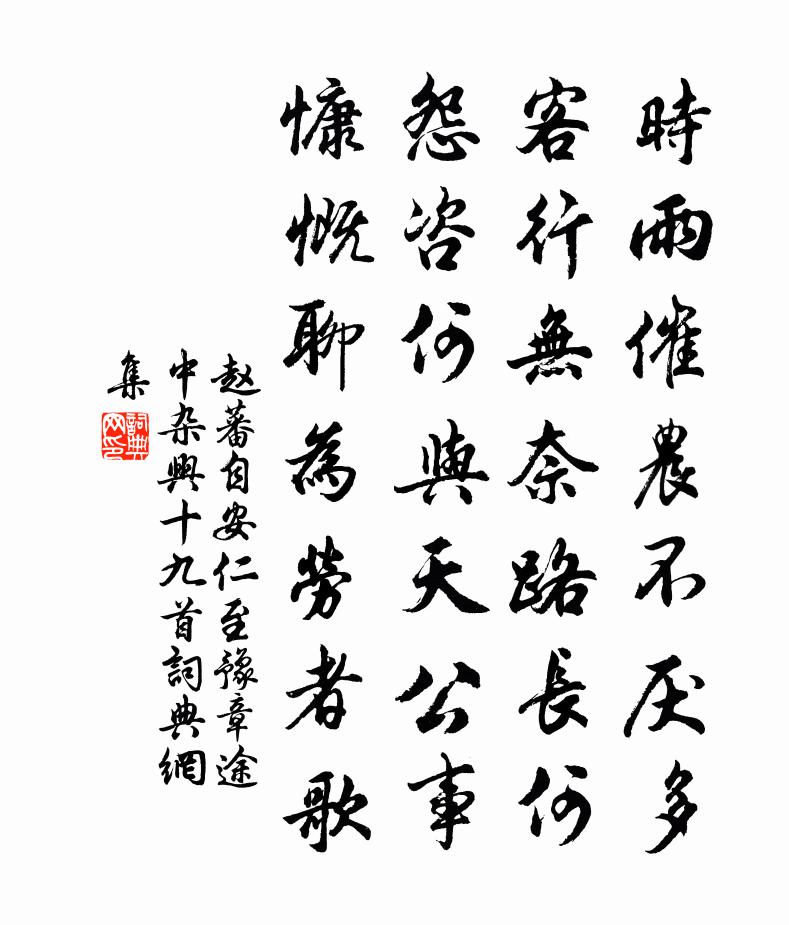 時雨催農不厌多
客行無奈路長何
怨咨何與天公事
慷慨聊為勞者歌
赵蕃自安仁至豫章途
中杂興十九首詞典網
集
詞典网印